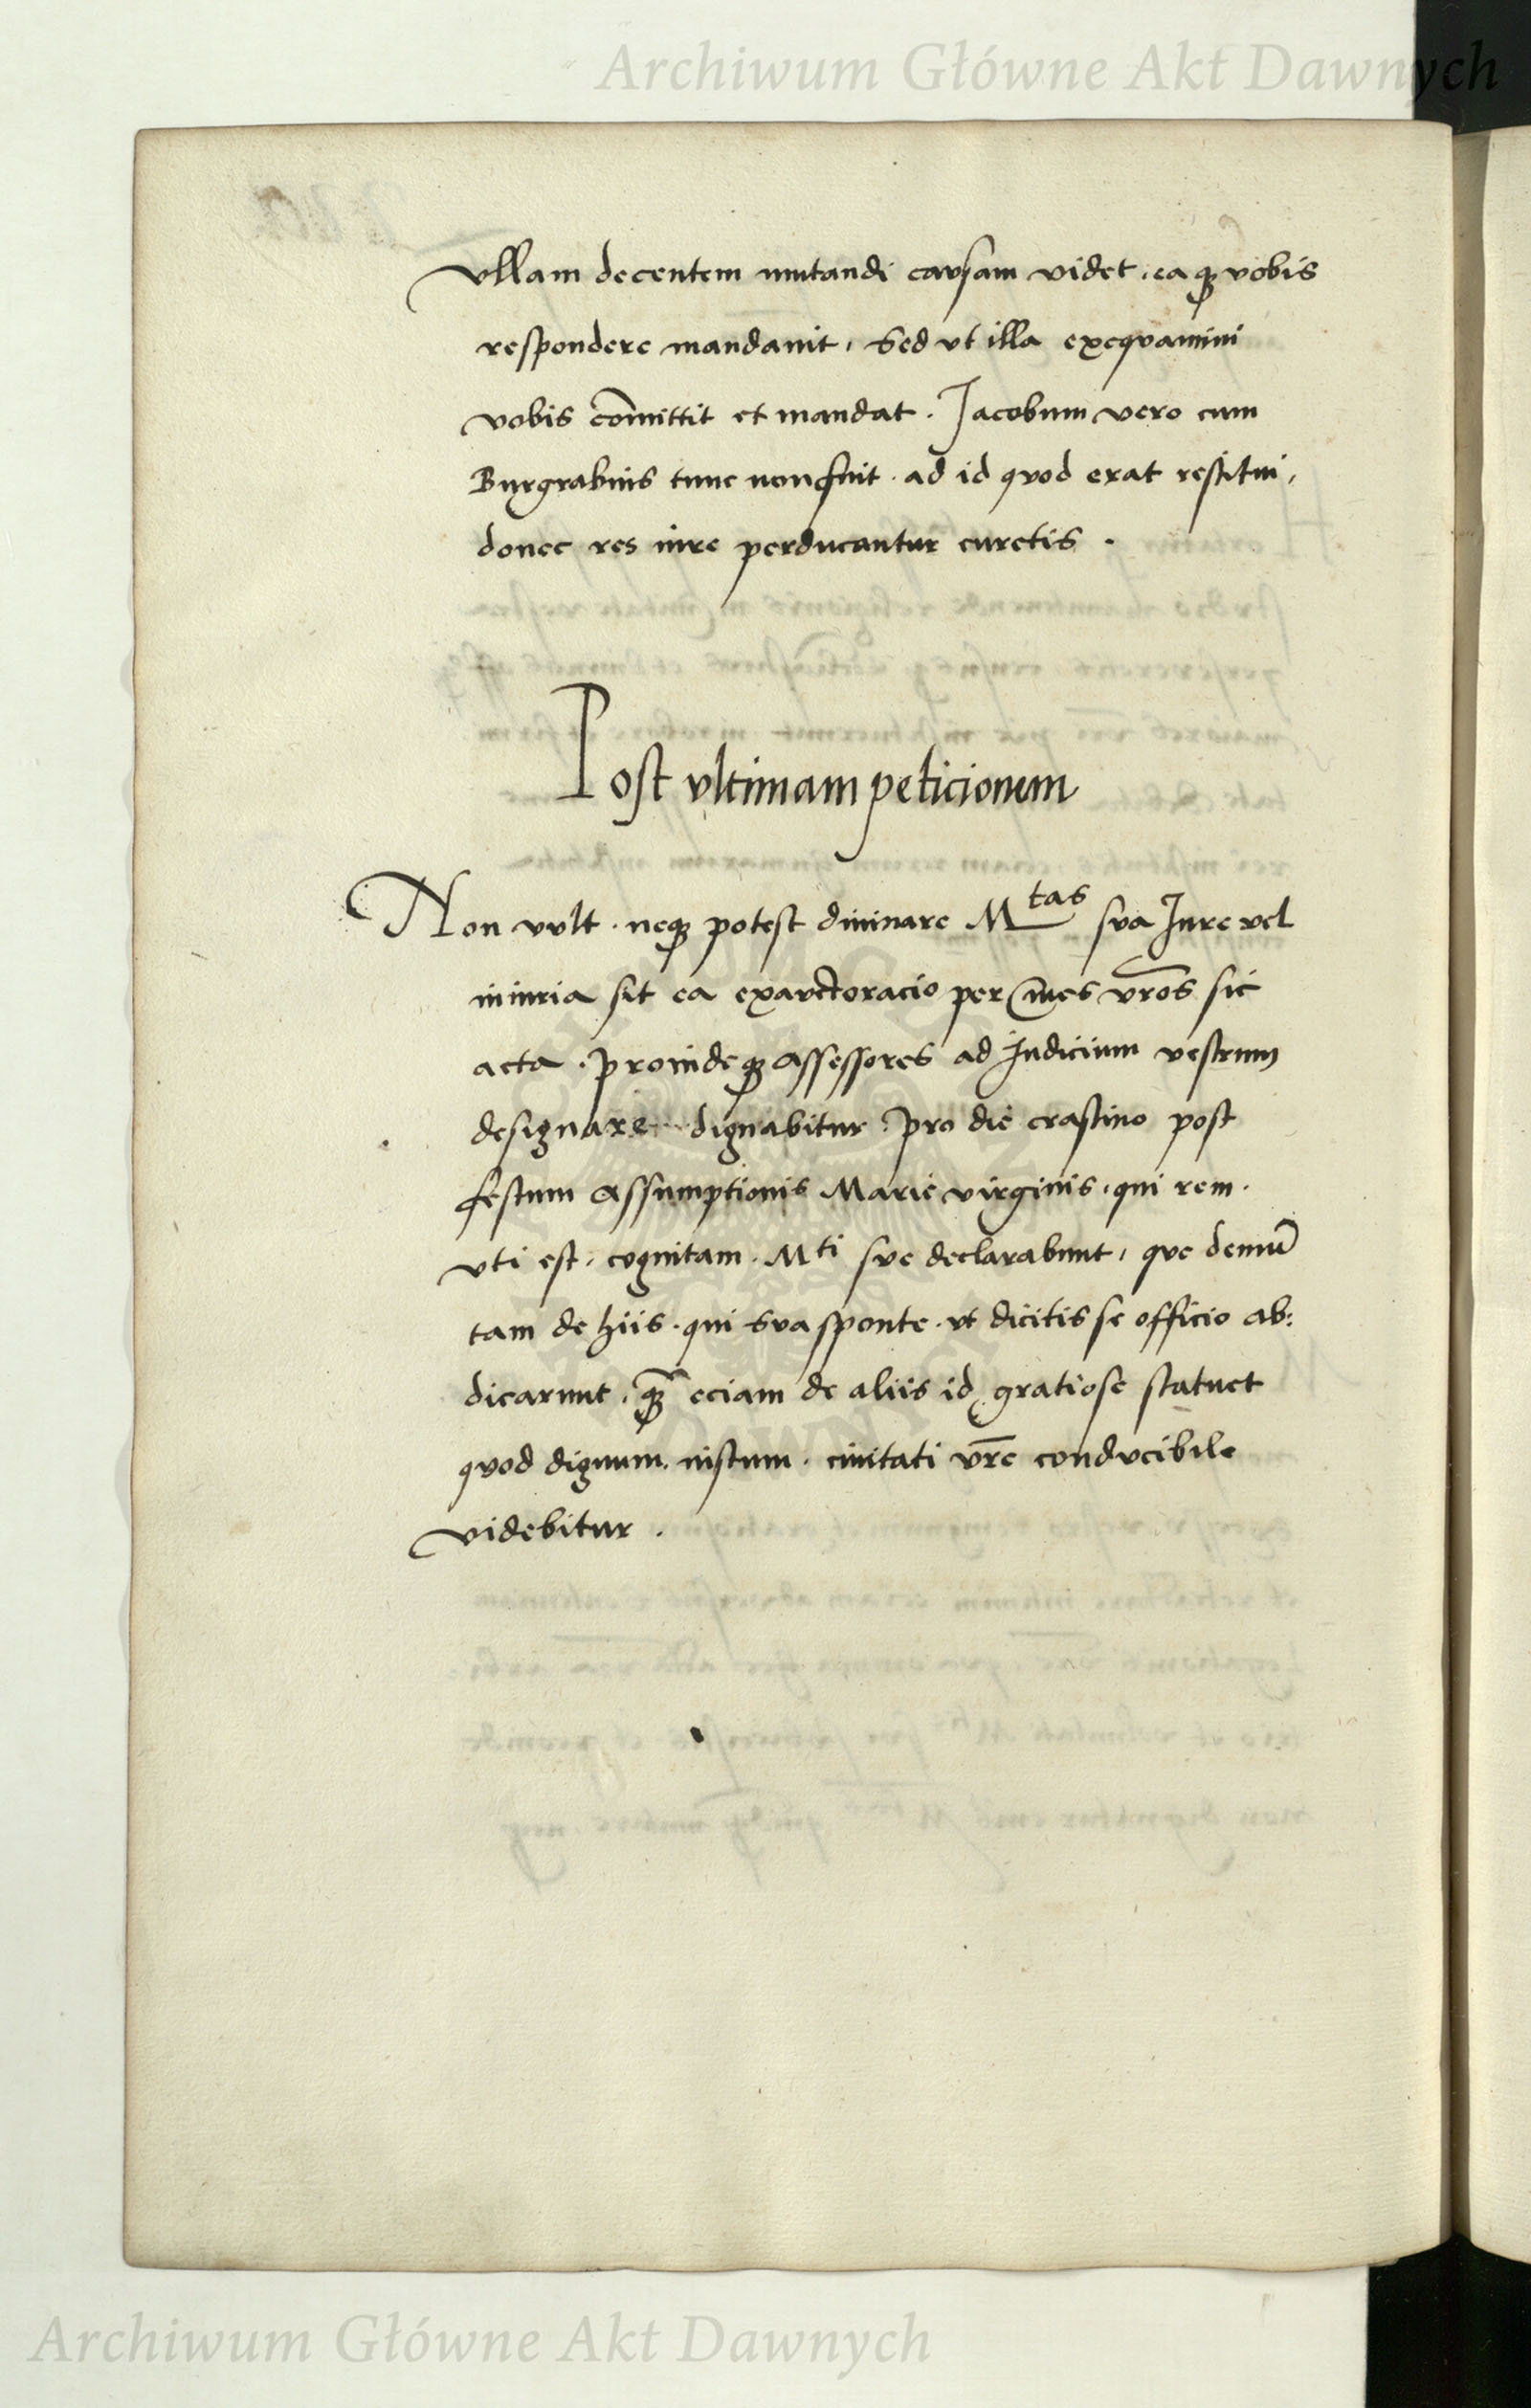 Archiwum Główne Akt Dawnych
vllam decentem mutandi causam videt, eaqꝫ vobis
respondere mandauit, Sed vt illa exequamini
vobis com̄ittit et mandat. Jacobum vero cum
Burgrabius tunc non fuit. ad id quod erat restitui,
donec res iure perducantur curetis.
Post vltimam peticionem
Non vult. neqꝫ potest diuinare Mtas sua Jure vel
iniuria sit ea exauctoracio per vr̄os sic
acta. proindeqꝫ assessores ad Judicium vestrum
designare dignabitur. pro die crastino post
festum Assumptionis Marie virginis. qui rem.
vti est. cognitam. Mti sue declarabunt, que demū
tam de hiis. qui sua sponte. vt dicitis se officio ab:
dicarunt. qꝫ̄ eciam de aliis id gratiose statuet
quod dignum. iustum. ciuitati vr̄e conducibile
videbitur.
Archiwum Główne Akt Dawnych